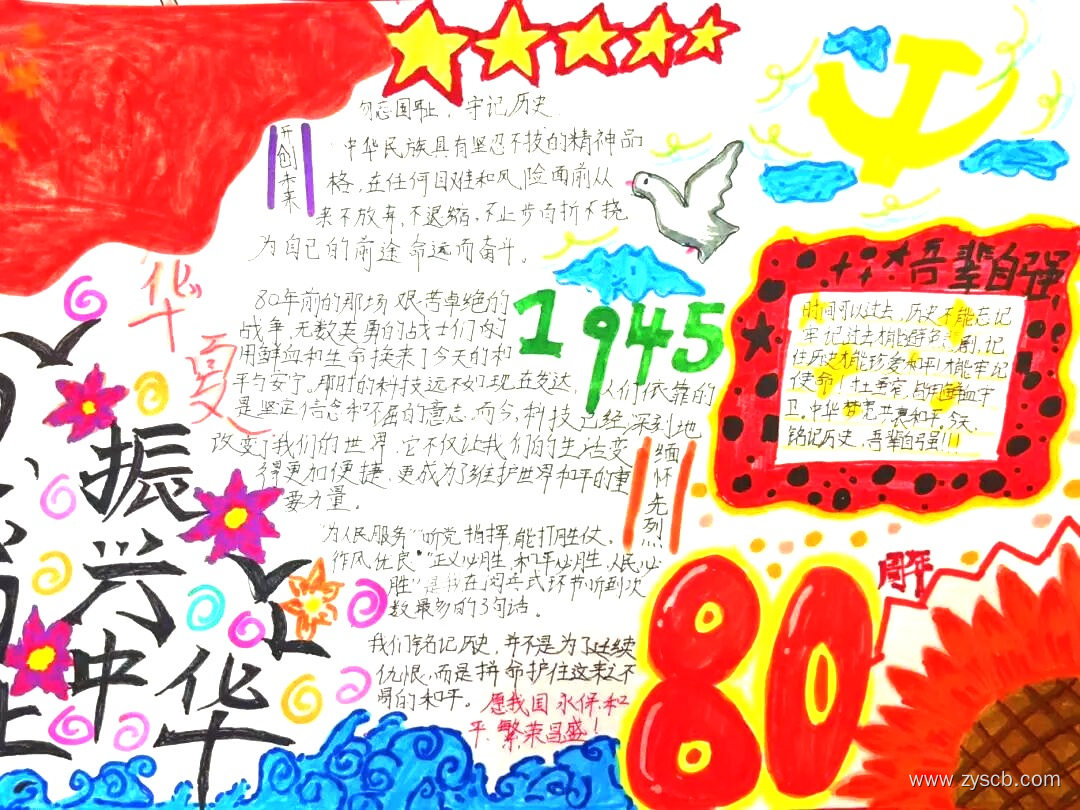 勿忘国耻，守记历史
开创未来
中华民族具有坚忍不技的精神品
格，在任何困难和风险面前从
来不放弃，不退缩，不止步百折不挠
为自己的前途命运而奋斗。
华夏
80年前的那场艰苦卓绝的
战争，无数英勇的战士们
用鲜血和生命换来了今天的和
平与安宁。那时的科技远不如现在发达，人们依靠的
是坚定信念和不屈的意志，而今，科技已经深刻地
改变了我们的世界，它不仅让我们的生活变
得更加便捷，更成为了维护世界和平的重
要力量。
缅怀先烈
"为人民服务""听党指挥，能打胜仗，
作风优良""正义必胜，和平必胜，人民必
胜"是我在阅兵式环节听到次
数最多的3句话。
我们铭记历史，并不是为了延续
仇恨，而是拼命护住这来之不
得的和平。愿我国永保和
平，繁荣昌盛！
1945
吾辈自强
时间可以过去，历史不能忘记
牢记过去才能避免剧，记
住历史才能珍爱和平，才能牢记
使命！
卫。中华梦
铭记历史，吾辈自强!!!
80
周年
振兴中华
www.zyscb.com